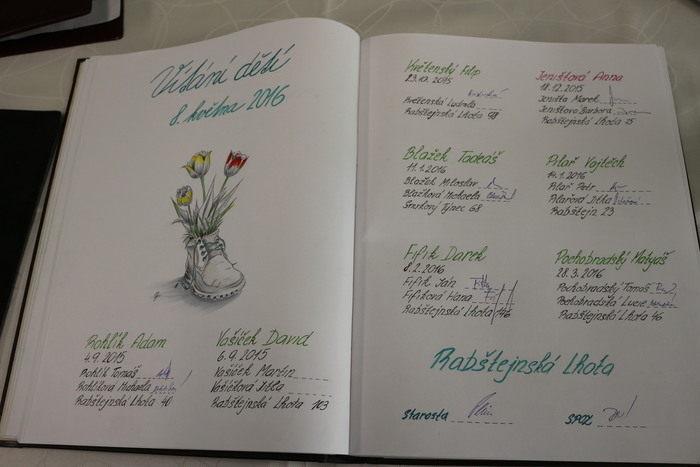 Vítání dětí
8. května 2016
Rohlík Adam
4.9.2015
Rohlík Tomáš
Rohlíková Michaela
Rabštejnská Lhota 40
Vašíček David
6.9.2015
Vašíček Martin
Vašíčková Jitka
Rabštejnská Lhota 103
Květenský Filip
23.10.2015
Květenská Ludmila
Rabštejnská Lhota 98
Jeništová Anna
18.12.2015
Jeništa Marek
Jeništová Barbora
Rabštejnská Lhota 15
Blažek Tadeáš
11.1.2016
Blažek Miloslav
Blažková Michaela
Smrkový Týnec 68
Pilař Vojtěch
14.1.2016
Pilař Petr
Pilařová Jitka
Rabštejn 23
Fifik Darek
8.2.2016
Fifik Ján
Fifiková Hana
Rabštejnská Lhota 146
Pochobradský Matyáš
28.3.2016
Pochobradský Tomáš
Pochobradská Lucie
Rabštejnská Lhota 46
Rabštejnská Lhota
Starosta
SPOZ